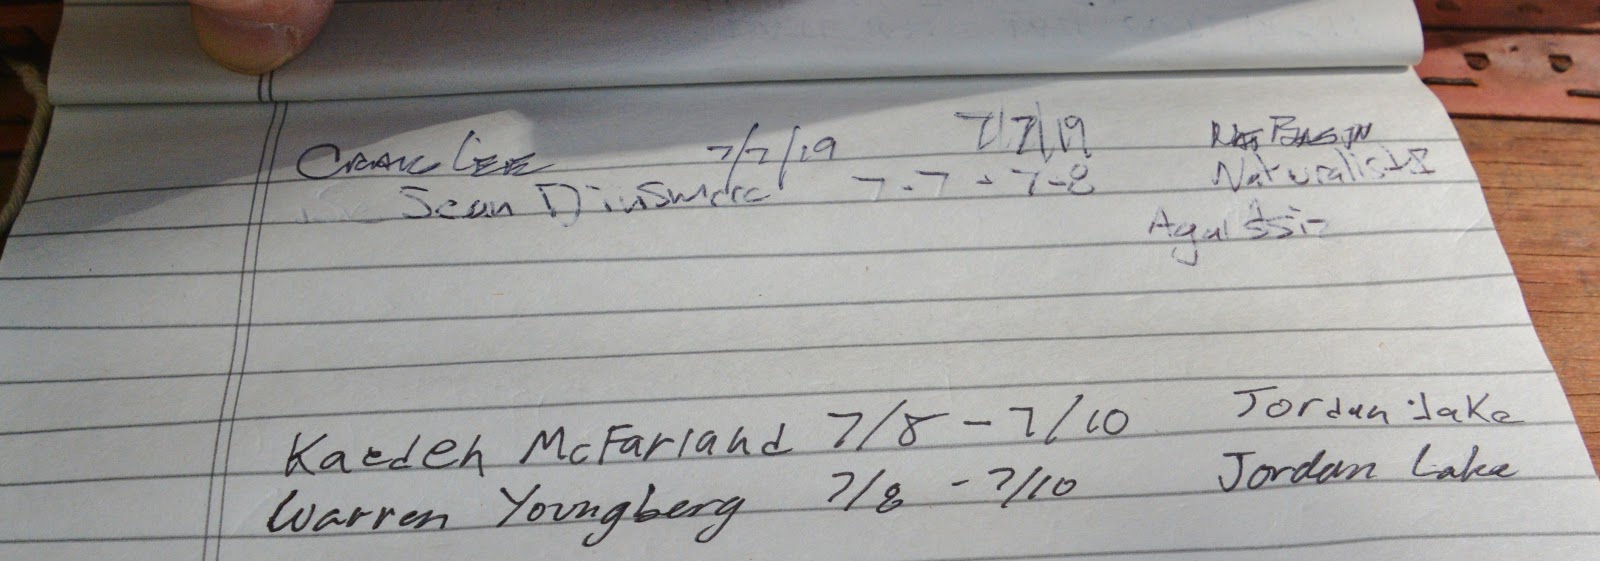 Craig Lee 7/7/19 7/7/19 Rat Basin
Sean Dinsmore 7-7-7-8 Naturalist II
Agassiz
Kaedeh McFarland 7/8 - 7/10 Jordan Lake
Warren Youngberg 7/8 - 7/10 Jordan Lake